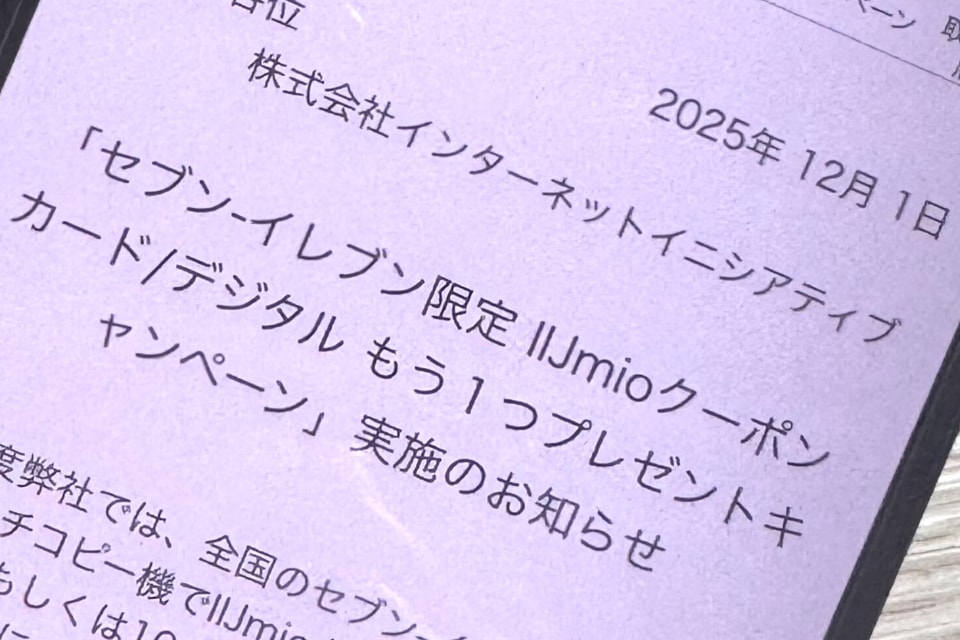 ペーン 取
各位
2025年 12月 1日
株式会社インターネットイニシアティブ
「セブン-イレブン限定 IIJmioクーポン
カード/デジタル もう１つプレゼントキ
ャンペーン」実施のお知らせ
度弊社では、全国のセブン-イ
チコピー機でIIJmio
もしくは10